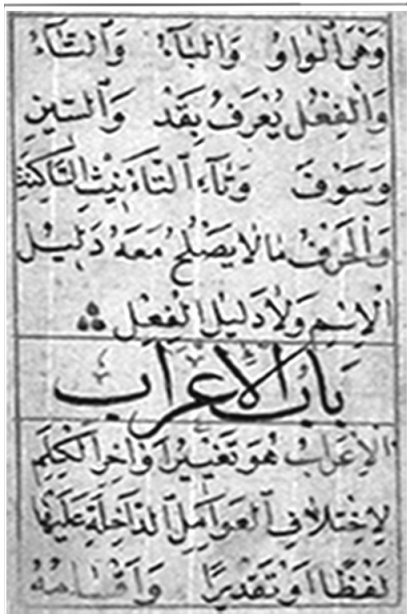 وَهْىَ ٱلْوَاوُ وَالْبَآءُ وَٱلتَّآءُ
وَالْفِعْلُ يُعْرَفُ بِقَدْ وَٱلسِّينِ
وَسَوْفَ وَتَآءِ ٱلتَّاءْنِيْثِ السَّاكِنَةِ
وَالْحَرْفُ مَا لَا يَصْلُحُ مَعَهُ دَلِيْلُ
الْاِسْمِ وَلَا دَلِيْلُ الْفِعْلِ
بَابُ الْاِعْرَابِ
الْاِعْرَابُ هُوَ تَغْيِيْرُ اَوَاخِرِ الْكَلِمِ
لِاِخْتِلَافِ ٱلْعَوَامِلِ ٱلدَّاخِلَةِ عَلَيْهَا
لَفْظًا اَوْ تَقْدِيْرًا وَاَقْسَامُهُ